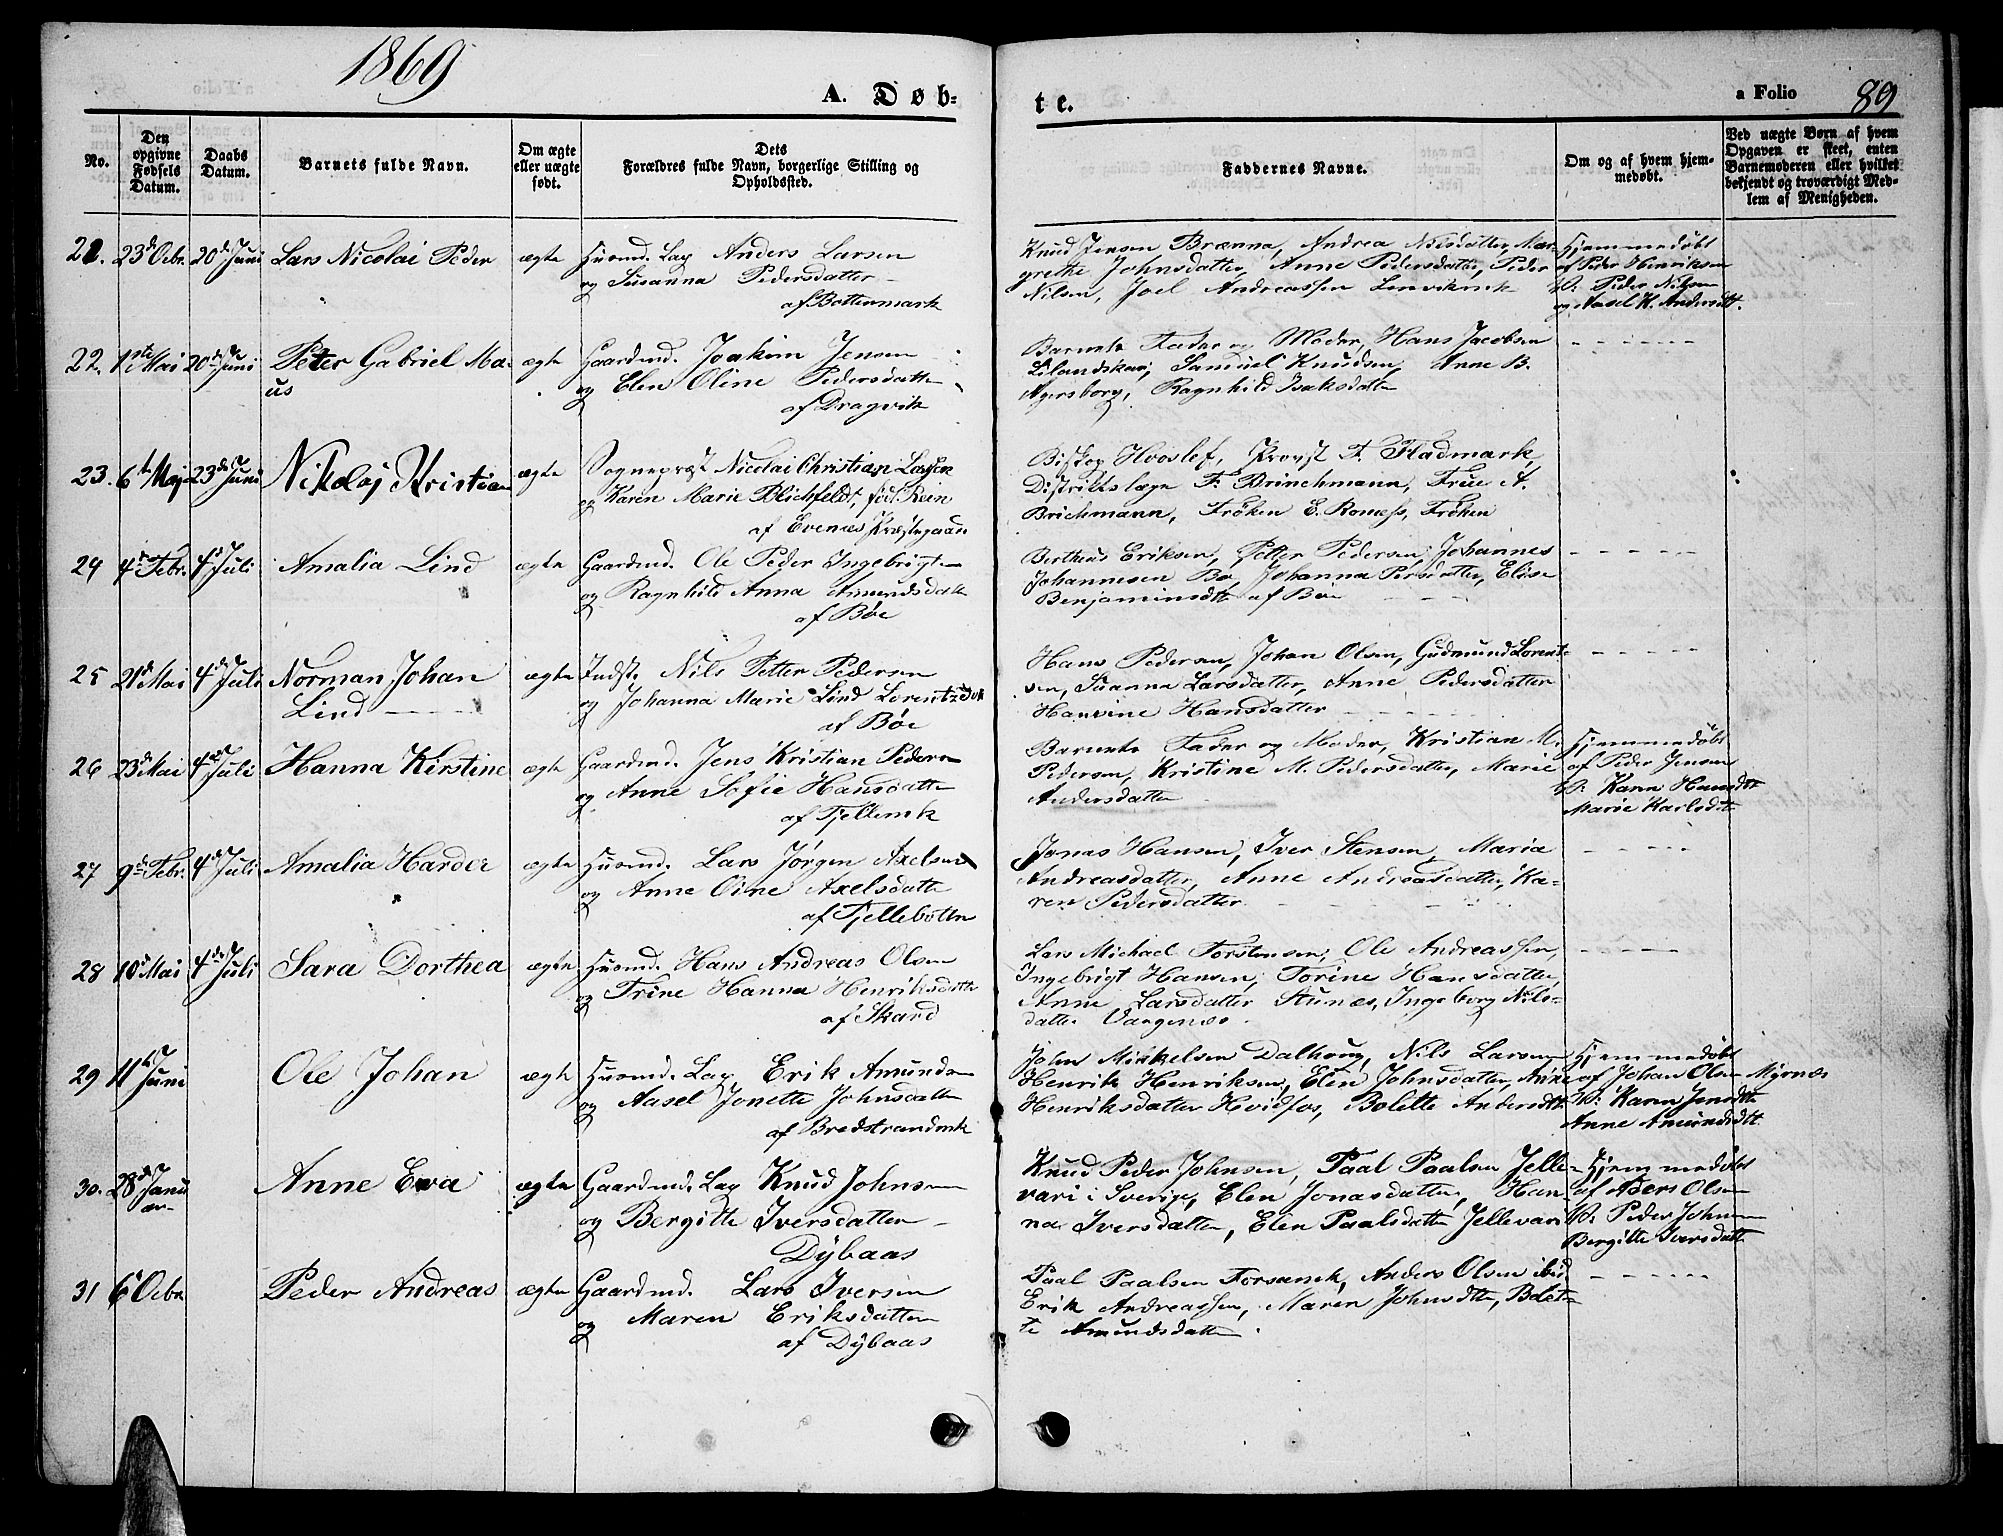 1869
A. Døb=
te.
a Folio 89
No.
Den opgivne Fødsels Datum.
Daabs Datum.
Barnets fulde Navn.
Om ægte eller uægte født.
Dets Forældres fulde Navn, borgerlige Stilling og Opholdssted.
Faddernes Navne.
Om og af hvem hjemmedøbt.
Ved uægte Børn af hvem Opgaven er skeet, enten Barnemoderen eller hvilket bekjendt og troværdigt Medlem af Menigheden.
21. 23d Octbr. 20d Juni Lars Nicolai Peder ægte Husmd. Lap Anders Larsen
og Susanna Pedersdatter
af Bottenmark
Knud Jensen Brænna, Andrea Nilsdatter, Mar-
grethe Johnsdatter, Anne Pedersdatter, Peder
Nilsen, Joel Andreassen Lenvikmk
Hjemmedøbt
af Peder Henriksen
V: Peder Nilsen
og Aasel K. Andersdtt.
22. 1ste Mai 20de Juni Peter Gabriel Ma- ægte Gaardmd. Joakim Jensen
us og Elen Oline Pedersdatter
af Dragvik
Barnets Fader og Moder, Hans Jacobsen
Lilandskar, Samuel Knudsen, Anne B.
Agersborg, Ragnhild Isaksdatter
23. 6te Maj 23de Juni Nikolaj Kristian ægte Sognepræst Nicolai Christian Lassen
og Karen Marie Blichfeldt, fød. Rein
af Evenæs Præstegaard
Biskop Hvoslef, Provst F. Fladmark,
Distriktslæge F. Brinchmann, Frue A.
Brichmann, Frøken E. Romess, Frøken
24 4de Febr. 4d Juli Amalia Lind ægte Gaardmd. Ole Peder Ingebrigtsen
og Ragnhild Anna Amundsdatter
af Bøe
Bertheus Eriksen, Petter Pedersen, Johannes
Johannesen Bø, Johanna Persdatter, Elise
Benjaminsdtt af Bøe
25 21d Mai 4d Juli Norman Johan ægte Indst. Nils Petter Pedersen
Lind og Johanna Marie Lind Lorentzedtr
af Bøe
Hans Pedersen, Johan Olsen, Gudmund Lorent-
sen, Susanna Larsdatter, Anne Pedersdatter
Hansine Hansdatter
26 23d Mai 4de Juli Hanna Kirstine ægte Gaardmd. Jens Kristian Pedersen
og Anne Sofie Hansdatter
af Fjellemk
Barnets Fader og Moder, Kristian M.
Pedersen, Kristine M. Pedersdatter, Marie
Andersdatter
Hjemmedøbt
af Peder Jensen
V: Karen Hansdtt
Marie Karlsdtt
27 9de Febr. 4de Juli Amalia Harder ægte Husmd. Lars Jørgen Axelsen
og Anne Oine Axelsdatter
af Fjellebotten
Jonas Hansen, Iver Stensen, Maria
Andreasdatter, Anne Andreasdatter, Ka-
ren Pedersdatter
28 10d Mai 4de Juli Sara Dorthea ægte Husmd. Hans Andreas Olsen
og Trine Hanna Henriksdatter
af Skard
Lars Michael Torstensen, Ole Andreassen,
Ingebrigt Hansen, Torine Hansdatter,
Anne Larsdatter Stunæs, Ingeborg Nils-
datter Vargenæs.
29 11te Juni Ole Johan ægte Husmd. Lap Erik Amundsen
og Aasel Jonette Johnsdatter
af Bredstrandmk
John Mikkelsen Dalhoug, Nils Larsen
Henrik Henriksen, Elen Johnsdatter, Anne
Henriksdatter Hvidfos, Bolette Andersdtt
Hjemmedøbt
af Johan Olsen Myrnæs
V: Karen Jensdtt
Anne Amundsdtt
30. 28de Janu ægte Gaardmd. Lap Knud Johnsen
ar Anne Eva og Bergitte Iversdatter
Dybaas
Knud Peder Johnsen, Paal Paalsen Jelle-
vari i Sverige, Elen Jonasdatter, Han-
na Iversdatter, Elen Paalsdatter Jellevari
Hjemmedøbt
af Aders Olsen
V: Peder Johnsen
Bergitte Iversdatt
31 6te Octbr Peder Andreas ægte Gaardmd. Lars Iversen
og Maren Eriksdatter
af Dybaas
Paal Paalsen Forsamk, Anders Olsen ibid,
Erik Andreassen, Maren Johnsdtt, Bolet-
te Amundsdatter.